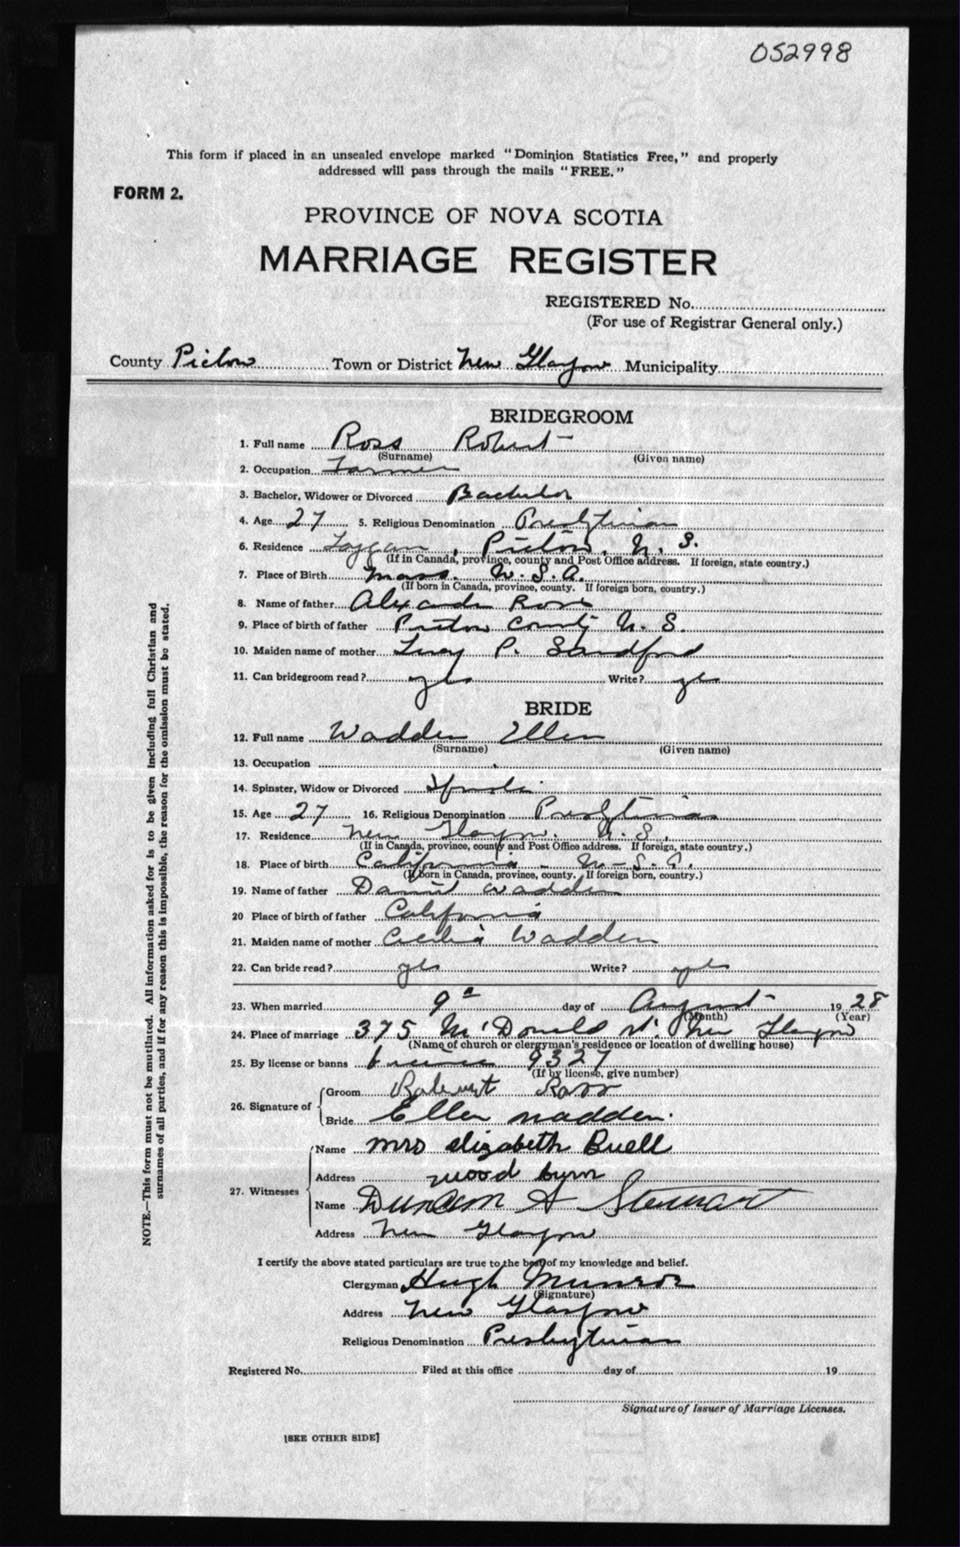 052998
This form if placed in an unsealed envelope marked "Dominion Statistics Free," and properly
addressed will pass through the mails "FREE."
FORM 2.
PROVINCE OF NOVA SCOTIA
MARRIAGE REGISTER
REGISTERED No.
(For use of Registrar General only.)
County Pictou Town or District New Glasgow Municipality
BRIDEGROOM
1. Full name Ross Robert
(Surname) (Given name)
2. Occupation Farmer
3. Bachelor, Widower or Divorced Bachelor
4. Age 27 5. Religious Denomination Presbyterian
6. Residence Loggan, Pictou, N. S.
(If in Canada, province, county and Post Office address. If foreign, state country.)
7. Place of Birth Mass. U. S. A.
(If born in Canada, province, county. If foreign born, country.)
8. Name of father Alexander Ross
9. Place of birth of father Pictou County N. S.
10. Maiden name of mother P. Sandford
11. Can bridegroom read? yes Write? yes
BRIDE
12. Full name Wadden Ellen
(Surname) (Given name)
13. Occupation
14. Spinster, Widow or Divorced
15. Age 27 16. Religious Denomination Presbyterian
17. Residence New Glasgow. N. S.
(If in Canada, province, county and Post Office address. If foreign, state country.)
18. Place of birth California - U-S.A.
(If born in Canada, province, county. If foreign born, country.)
19. Name of father Daniel Wadden
20 Place of birth of father California
21. Maiden name of mother Cecilia Wadden
22. Can bride read? yes Write? yes
23. When married 9th day of August 1928
(Month) (Year)
24. Place of marriage 375 McDonald St. New Glasgow
(Name of church or clergyman's residence or location of dwelling house)
25. By license or banns license 9327
(If by license, give number)
26. Signature of Groom Ross
Bride Ellen Wadden.
27. Witnesses Name Mrs Elizabeth Buell
Address wood byrn
Name Duncan A Stewart
Address New Glasgow
I certify the above stated particulars are true to the best of my knowledge and belief.
Clergyman Hugh Munroe
(Signature)
Address New Glasgow
Religious Denomination Presbyterian
Registered No. Filed at this office day of 19
Signature of Issuer of Marriage Licenses.
[SEE OTHER SIDE]
NOTE.—This form must not be mutilated. All information asked for is to be given including full Christian and
surnames of all parties, and if for any reason this is impossible, the reason for the omission must be stated.